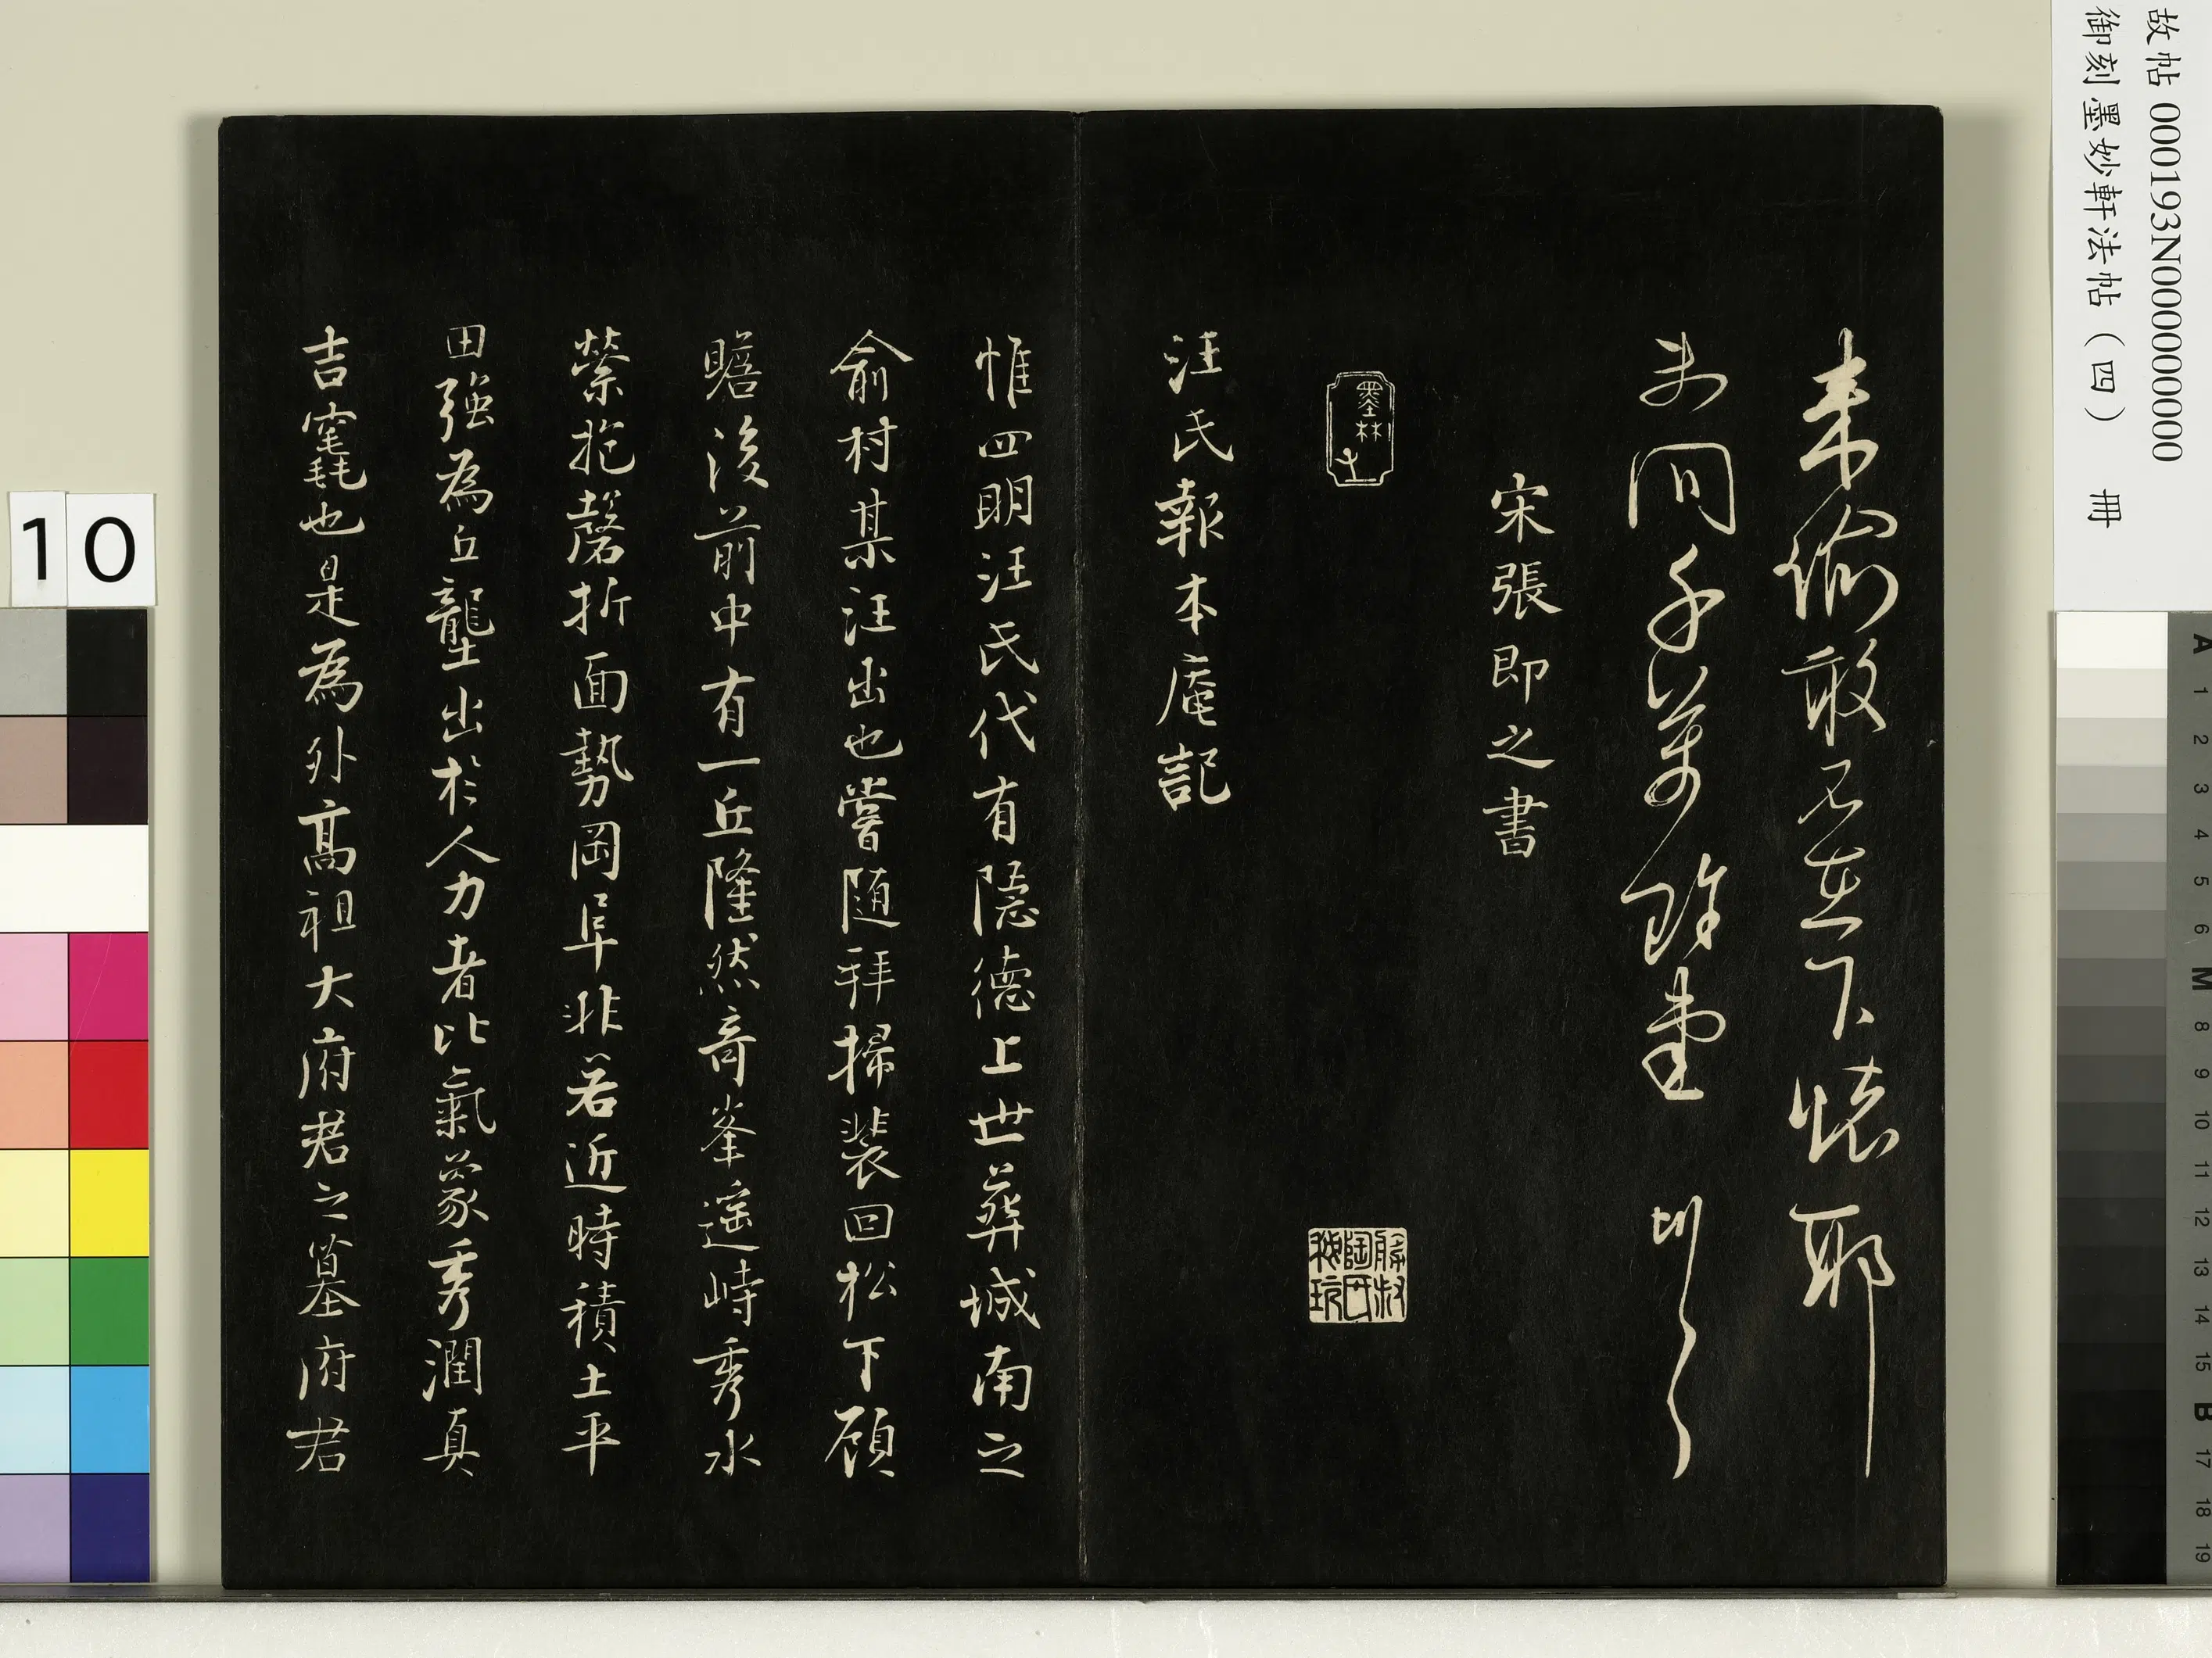 故帖 000193N000000000
御刻墨妙軒法帖（四） 冊
来諭敢不在下懷耶
未間千萬珍重
宋張即之書
墨林
汪氏報本庵記
惟四明汪氏代有隱德上世葬城南之
俞村某汪出也嘗随拜掃裴回松下顧
瞻後前中有一丘隆然奇峯遥峙秀水
縈抱磬折面勢岡阜非若近時積土平
田強為丘壟出於人力者比氣象秀潤真
吉竁也是為外高祖大府君之墓府君
10
A
1
2
3
4
5
6
M
8
9
10
11
12
13
14
15
B
17
18
19